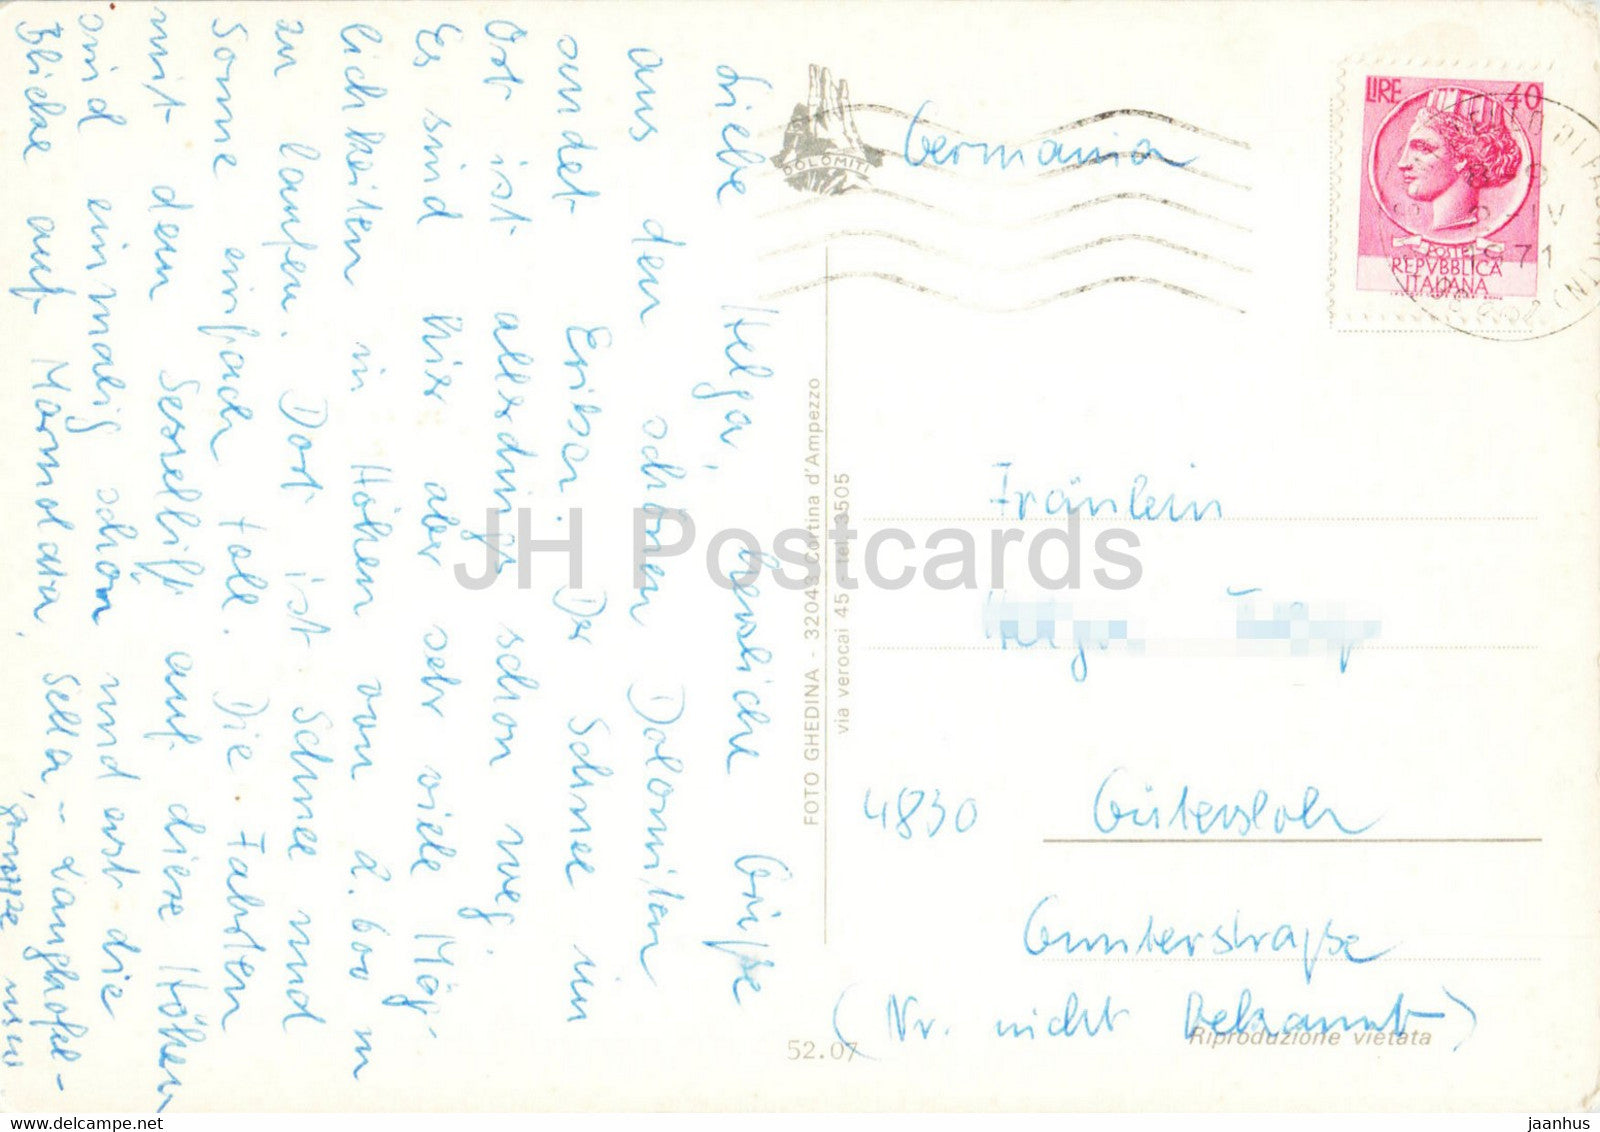 Liebe Helga, herzliche Grüße
aus den schönen Dolomiten
sendet Eriker. Der Schnee im
Ort ist allerdings schon weg.
Es sind hier aber sehr viele Mög-
lichkeiten in Höhen von 2.600 m
zu laufen. Dort ist Schnee und
Sonne einfach toll. Die Fahrten
mit dem Sessellift auf diese Höhen
sind einmalig schön und erst die
Blicke auf Marmolata, Sella-Langkofel-
gruppe usw
DOLOMITI
Germania
LIRE 40
POSTE
REPVBBLICA
ITALIANA
1971
FOTO GHEDINA - 32043 Cortina d'Ampezzo
via verocai 45 - tel. 3505
Fräulein
4830 Gütersloh
Gunterstraße
(Nr. nicht bekannt)
Riproduzione vietata
52.07
JH Postcards
jaanhus
delcampe.net